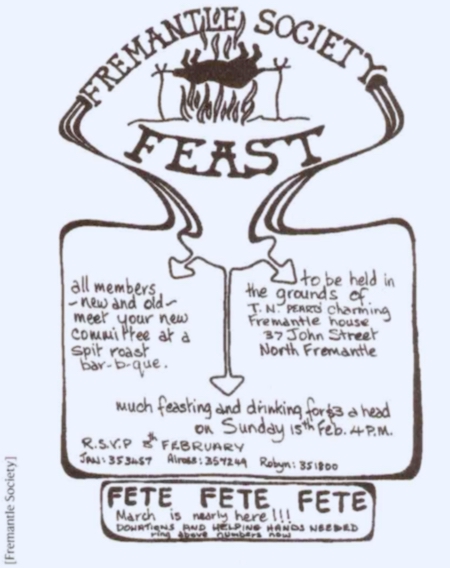 FREMANTLE SOCIETY
FEAST
all members
~new and old~
meet your new
committee at a
spit roast
bar-b-que.
to be held in
the grounds of
T. N. PEARD charming
Fremantle house
37 John Street
North Fremantle
much feasting and drinking for $3 a head
on Sunday 15th Feb. 4 P.M.
R.S.V.P 8th FEBRUARY
JAN: 353457 357249 Robyn: 351800
FETE FETE FETE
March is nearly here!!!
DONATIONS AND HELPING HANDS NEEDED
ring above numbers now
[Fremantle Society]